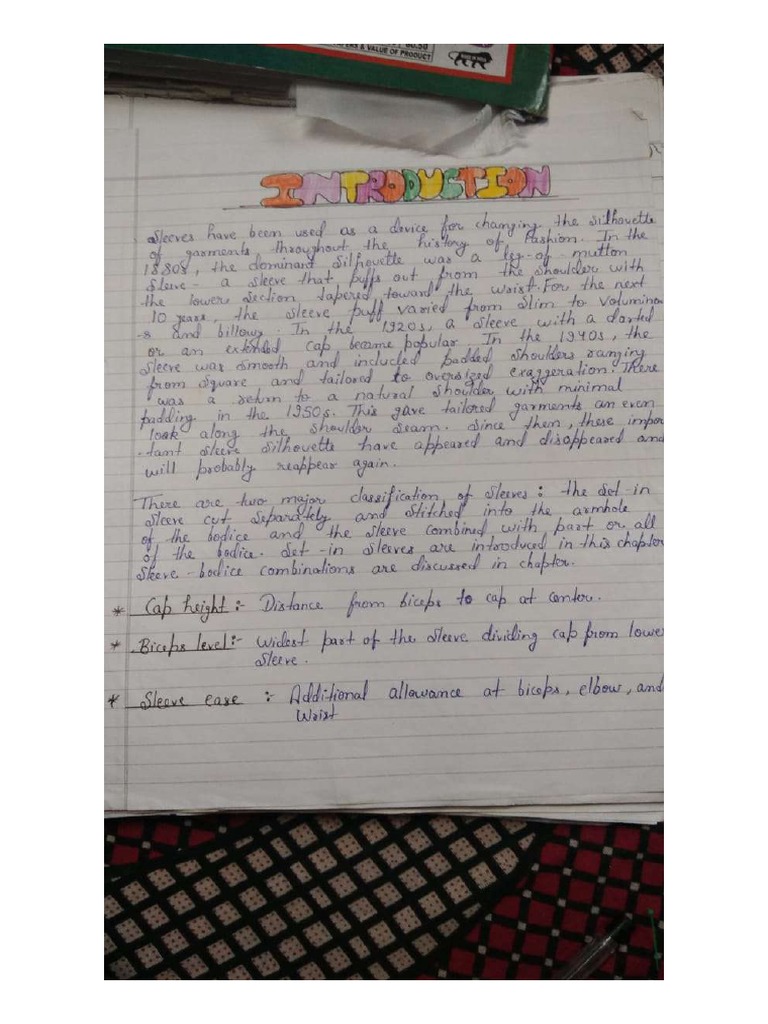 & VALUE OF PRODUCT
INTRODUCTION
Sleeves have been used as a device for changing the silhouette
of garments throughout the history of fashion. In the
1880s, the dominant silhouette was a leg-of-mutton
sleeve - a sleeve that puffs out from the shoulder with
the lower section tapered toward the waist. For the next
10 years, the sleeve puff varied from slim to voluminou
-s and billowy. In the 1920s, a sleeve with a darted
or an extended cap became popular. In the 1940s, the
sleeve was smooth and included padded shoulders ranging
from square and tailored to oversized exaggeration. There
was a return to a natural shoulder with minimal
padding in the 1950s. This gave tailored garments an even
look along the shoulder seam. Since them, these impor
-tant sleeve silhouette have appeared and disappeared and
will probably reappear again.
There are two major classification of sleeves: the set-in
sleeve cut separately and stitched into the armhole
of the bodice and the sleeve combined with part or all
of the bodice. Set-in sleeves are introduced in this chapter
sleeve-bodice combinations are discussed in chapter.
* Cap height :- Distance from biceps to cap at center.
* Biceps level:- Widest part of the sleeve dividing cap from lower
sleeve.
* Sleeve ease :- Additional allowance at biceps, elbow, and
wrist